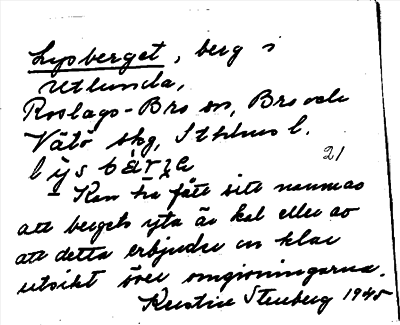 Lysberget, berg i
Utlunda,
Roslags-Bro sn, Bro och
Vätö skg, Sthlms l.
lỳsbàrjε 21
- Kan ha fått sitt namn av
att bergets yta är kal eller av
att detta erbjuder en klar
utsikt över omgivningarna.
Kerstin Stenberg 1945